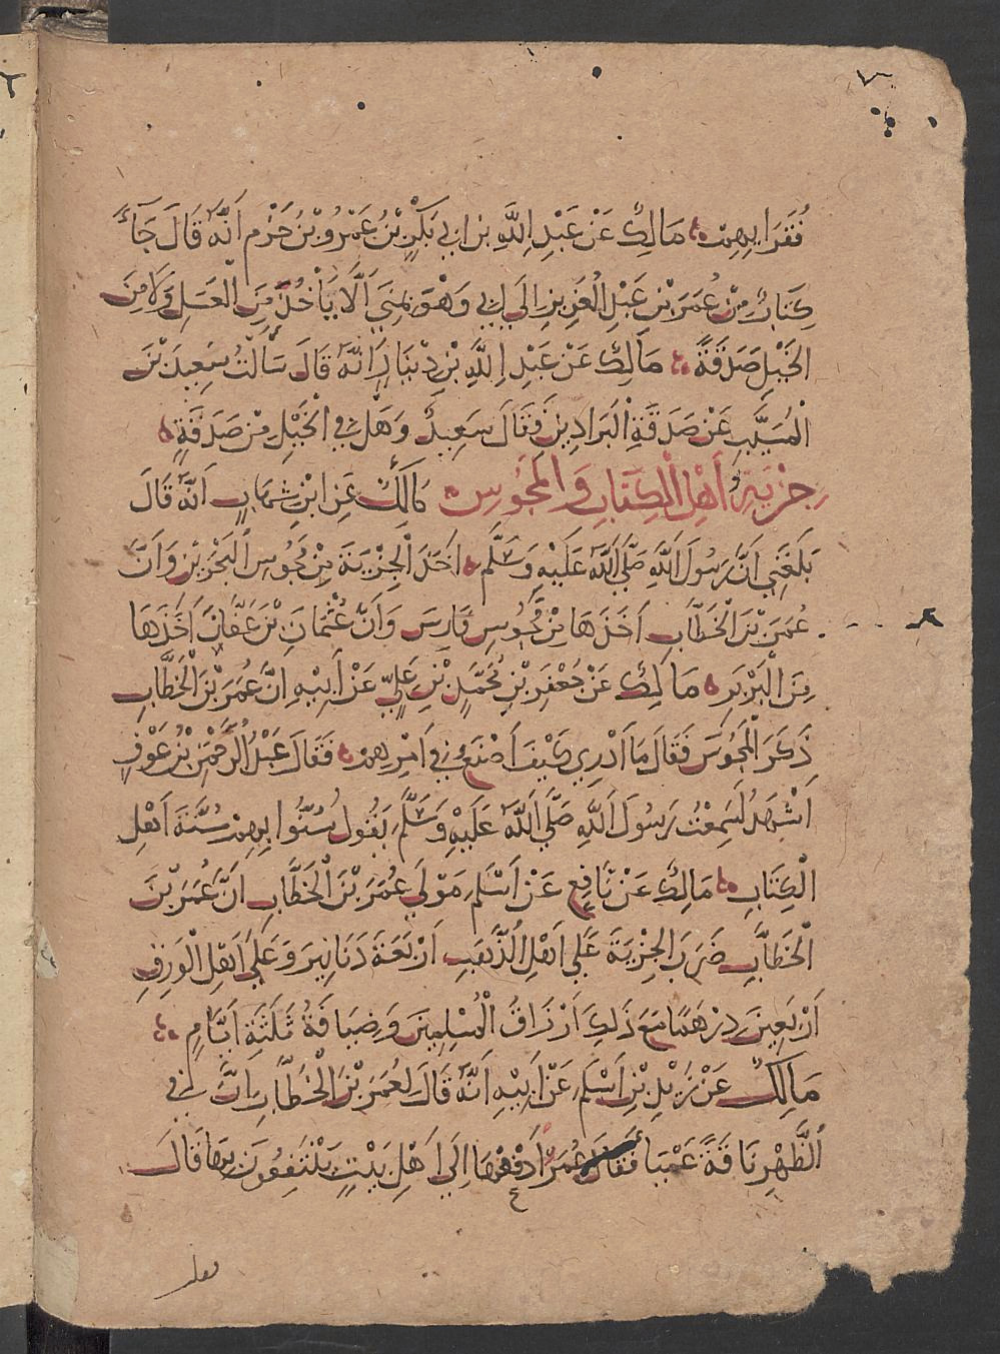 ٧
فُقَرَايِهِمْ مَالِكٌ عَنْ عَبْدِ اِللَّهِ بْنِ ابِي بَكْرِ بْنِ عَمْرُو بْنُ حَزْمٍ اَنَّهُ قَالَ جَآءَ
كِتَابٌ مِنْ عُمَرَ بْنِ عَبْدِ الْعَزِيزِ اِلَي ابِي وَهْوَ بِمِنَيً اَلَّا يَأْخُذَ مِنَ الْعَسَلِ وَلَا مِنَ
الْخَيْلِ صَدَقَةً مَالِكٌ عَنْ عَبْدِ اِللَّهِ بْنِ دِينَارٍ اَنَّهُ قَالَ سَأَلْتُ سَعِيدَ بْنَ
الْمُسَيَّبِ عَنْ صَدَقَةِ الْبَرَاذِينِ فَقَالَ سَعِيدٌ وَهَلْ فِي الْخَيْلِ مِنْ صَدَقَةٍ
جِزْيَةُ أَهْلِ الْكِتَابِ وَالْمَجُوسِ مَالِكٌ عَنِ ابْنِ شِهَابٍ اَنَّهُ قَالَ
بَلَغَنِي اَنَّ رَسُولَ اَللَّهِ صَلَّي اَللَّهُ عَلَيْهِ وَسَلَّم اَخَذَ الْجِزْيَةَ مِنْ مَجُوسِ الْبَحْرَيْنِ وَاَنَّ
عُمَرَ بْنَ الْخَطَّابِ اَخَذَهَا مِنْ مَجُوسِ فَارِسَ وَاَنَّ عُثْمَانَ بْنَ عَفَّانَ اَخَذَهَا
مِنَ الْبَرْبَرِ مَالِكٌ عَنْ جَعْفَرِ بْنِ مُحَمَّدِ بْنِ عَلِيٍّ عَنْ أَبِيهِ اِنَّ عُمَرَ بْنَ الْخَطَّابِ
ذَكَرَ الْمَجُوسَ فَقَالَ مَا أَدْرِي كَيْفَ اَصْنَعُ فِي اَمْرِهِمْ فَقَالَ عَبْدُ الرَّحْمَنِ بْنُ عَوْفٍ
اَشْهَدُ لَسَمِعْتُ رَسُولَ اَللَّهِ صَلَّي اَللَّهُ عَلَيْهِ وَسَلَّمَ يَقُولُ سُنُّوا بِهِمْ سُنَّةَ اَهْلِ
الْكِتَابِ مَالِكٌ عَنْ نَافِعٍ عَنْ اَسْلَمَ مَوْلَي عُمَرَ بْنَ الْخَطَّابِ اَنَّ عُمَرَ بْنَ
الْخَطَّابِ ضَرَبَ الْجِزْيَةَ عَلَي اَهْلِ الذَّهَبِ اَرْبَعَةَ دَنَانِيرَ وَعَلَي اَهْلِ الْوَرِقِ
اَرْبَعِينَ دِرْهَمًا مَعَ ذَلِكَ اَرْزَاقُ الْمُسْلِمِينَ وَضِيَافَةُ ثَلَثَةِ اَيَّامٍ
مَالِكٌ عَنْ زَيْدِ بْنِ اَسْلَمَ عَنْ اَبِيهِ اَنَّهُ قَالَ لِعُمَرَ بْنَ الْخَطَّابِ اِنَّ فِي
اَلظَّهْرِ نَاقَةً عَمْيَا فَقَالَ عُمَرُ اَدْفَعْهَا اِلَي اَهْلِ بَيْتٍ يَنْتَفِعُونَ بِهَا قَالَ
فقلت